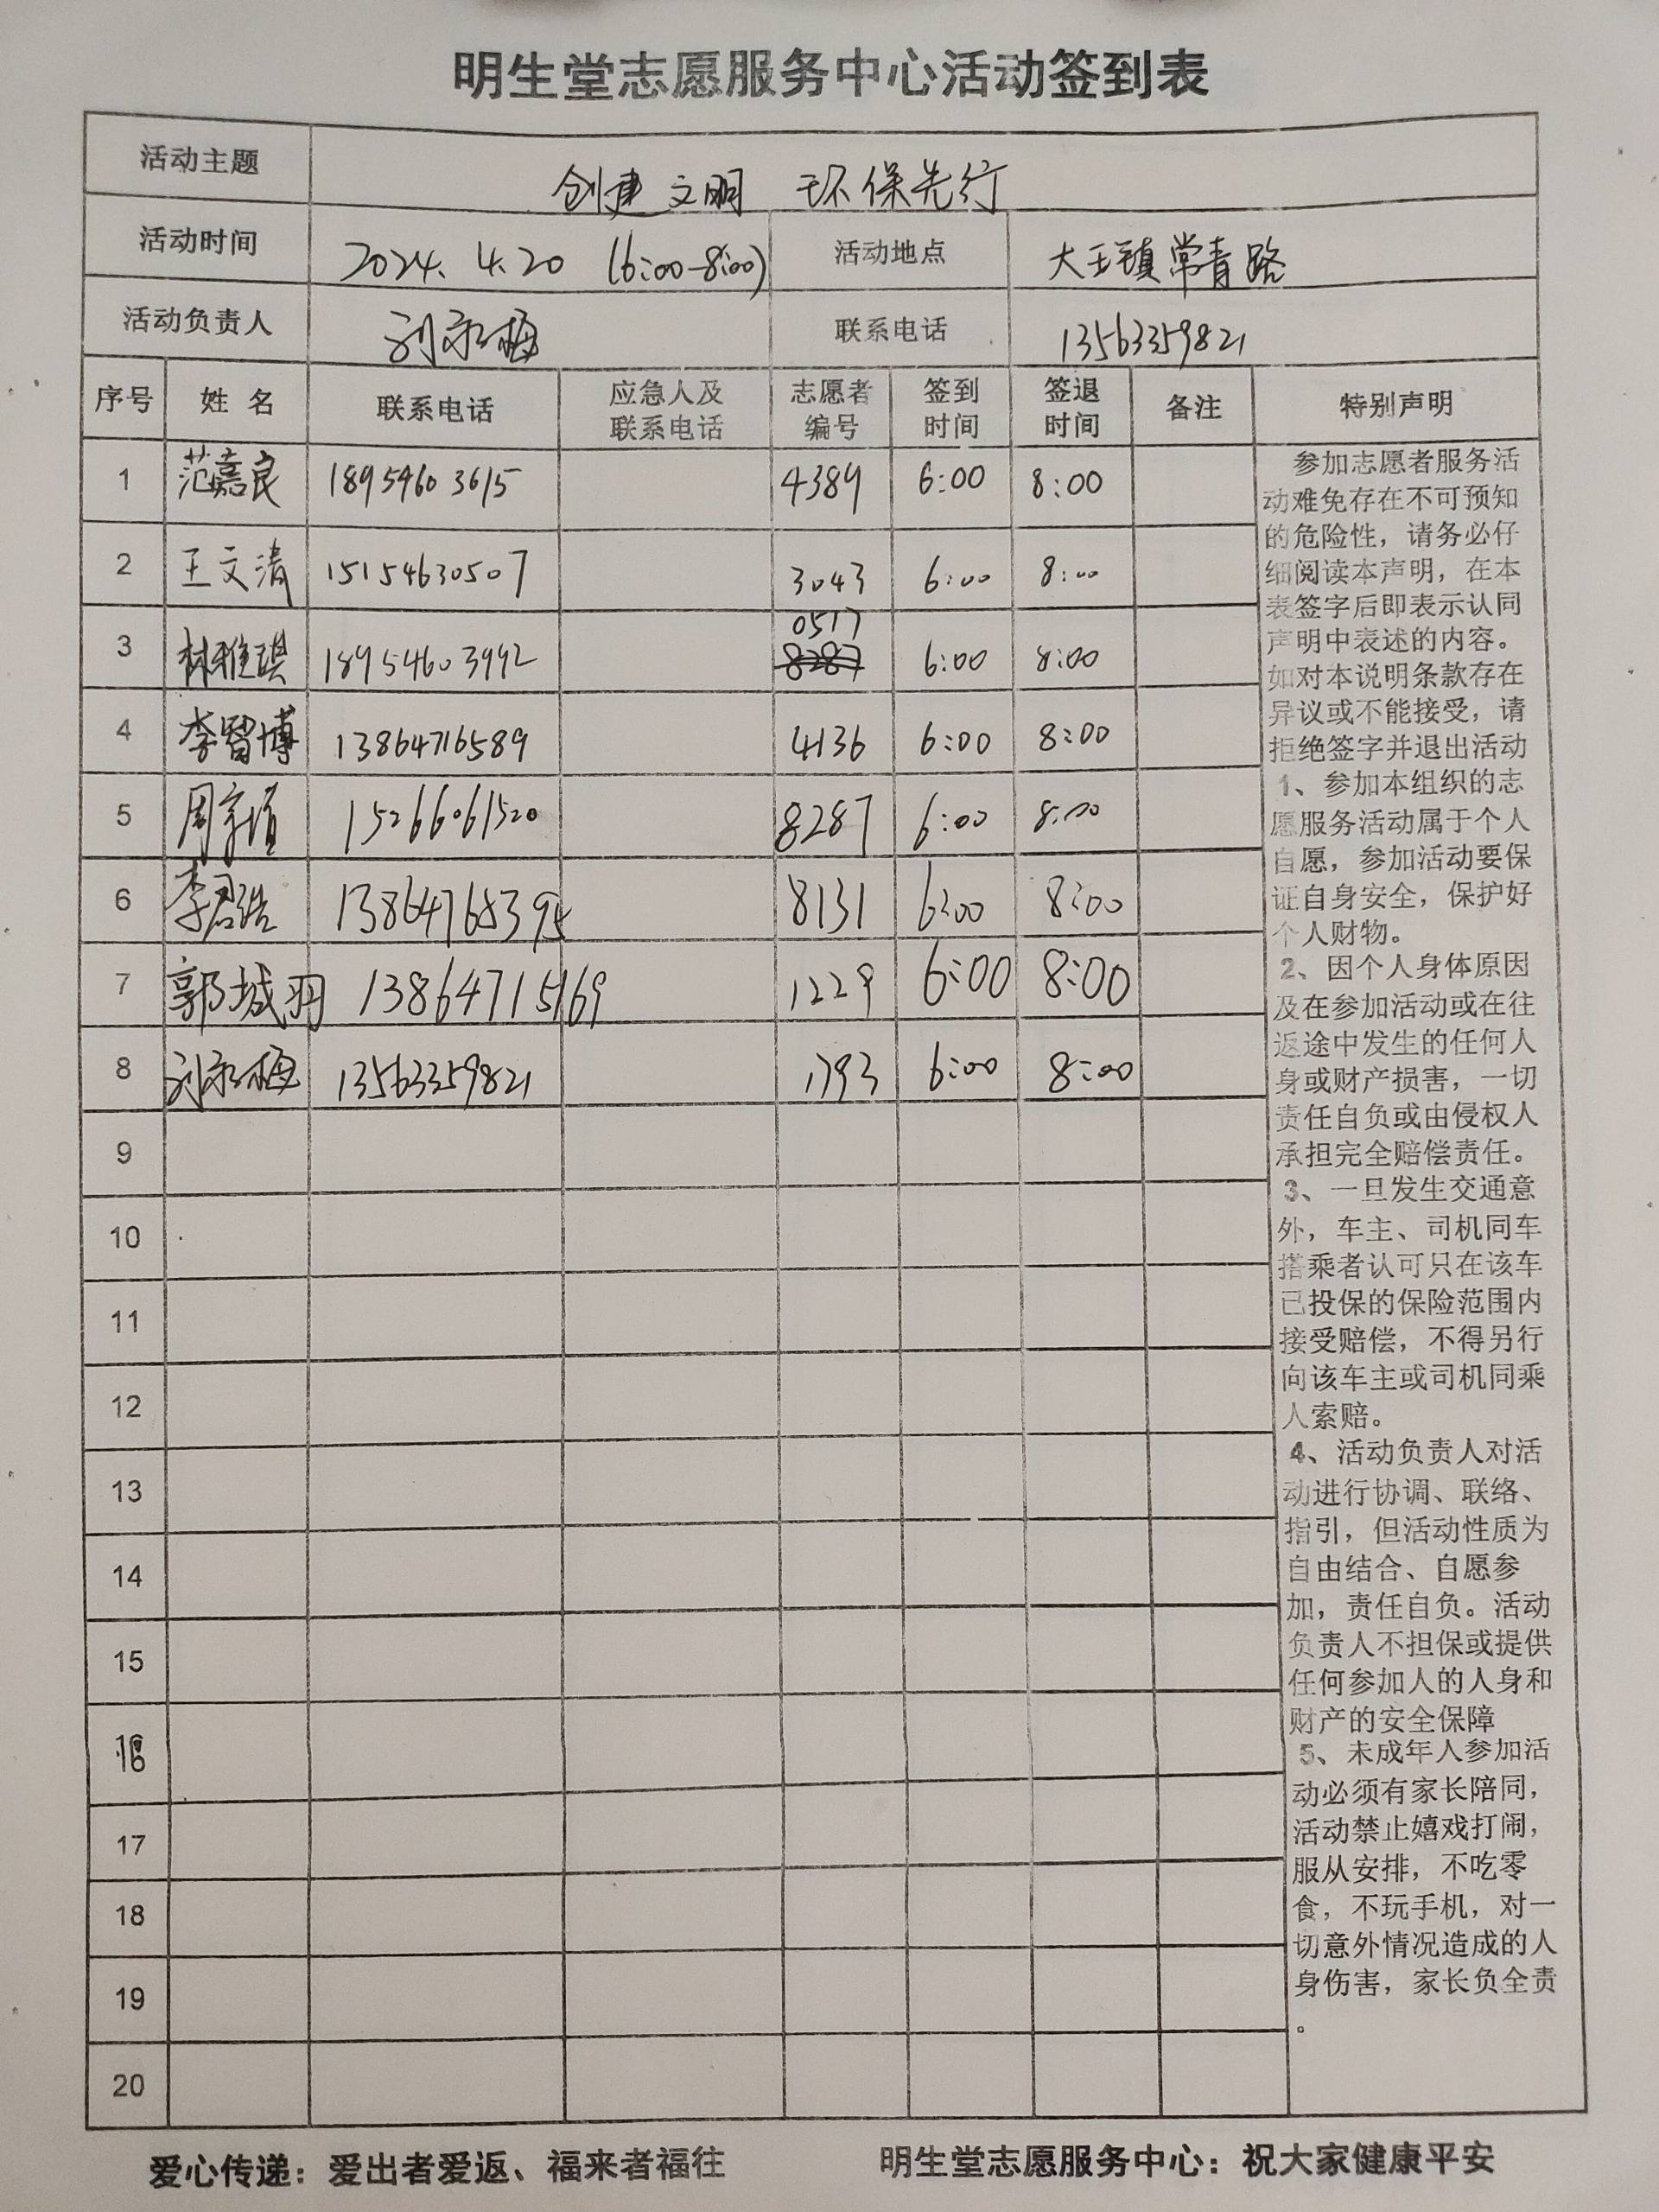 明生堂志愿服务中心活动签到表
活动主题 创建文明 环保先行
活动时间 2024.4.20 (6:00-8:00) 活动地点 大王镇常青路
活动负责人 刘永梅 联系电话 13563359821
序号 姓名 联系电话 应急人及联系电话 志愿者编号 签到时间 签退时间 备注 特别声明
1 范嘉良 18954603615 4389 6:00 8:00
2 王文清 15154630507 3043 6:00 8:00
0517
3 林雅琪 18954603992 8287 6:00 8:00
4 李智博 13864716589 4136 6:00 8:00
5 15266061520 8287 6:00 8:00
6 李君浩 13864765395 8131 6:00 8:00
7 郭城羽 13864715169 1229 6:00 8:00
8 刘永梅 13563359821 1793 6:00 8:00
9
10
11
12
13
14
15
16
17
18
19
20
参加志愿者服务活
动难免存在不可预知
的危险性，请务必仔
细阅读本声明，在本
表签字后即表示认同
声明中表述的内容。
如对本说明条款存在
异议或不能接受，请
拒绝签字并退出活动
1、参加本组织的志
愿服务活动属于个人
自愿，参加活动要保
证自身安全，保护好
个人财物。
2、因个人身体原因
及在参加活动或在往
返途中发生的任何人
身或财产损害，一切
责任自负或由侵权人
承担完全赔偿责任。
3、一旦发生交通意
外，车主、司机同车
搭乘者认可只在该车
已投保的保险范围内
接受赔偿，不得另行
向该车主或司机同乘
人索赔。
4、活动负责人对活
动进行协调、联络、
指引，但活动性质为
自由结合、自愿参
加，责任自负。活动
负责人不担保或提供
任何参加人的人身和
财产的安全保障
5、未成年人参加活
动必须有家长陪同，
活动禁止嬉戏打闹，
服从安排，不吃零
食，不玩手机，对一
切意外情况造成的人
身伤害，家长负全责
。
爱心传递：爱出者爱返、福来者福往 明生堂志愿服务中心：祝大家健康平安